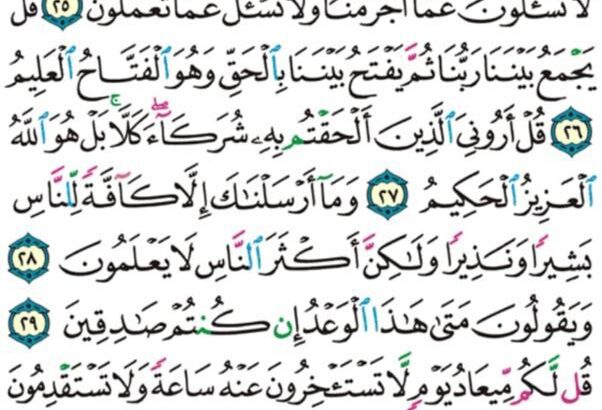 لَا تُسْـَٔلُونَ عَمَّآ أَجْرَمْنَا وَلَا نُسْـَٔلُ عَمَّا تَعْمَلُونَ ٢٥ قُلْ
يَجْمَعُ بَيْنَنَا رَبُّنَا ثُمَّ يَفْتَحُ بَيْنَنَا بِٱلْحَقِّ وَهُوَ ٱلْفَتَّاحُ ٱلْعَلِيمُ
٢٦ قُلْ أَرُونِىَ ٱلَّذِينَ أَلْحَقْتُم بِهِۦ شُرَكَآءَ ۖ كَلَّا ۚ بَلْ هُوَ ٱللَّهُ
ٱلْعَزِيزُ ٱلْحَكِيمُ ٢٧ وَمَآ أَرْسَلْنَٰكَ إِلَّا كَآفَّةً لِّلنَّاسِ
بَشِيرًا وَنَذِيرًا وَلَٰكِنَّ أَكْثَرَ ٱلنَّاسِ لَا يَعْلَمُونَ ٢٨
وَيَقُولُونَ مَتَىٰ هَٰذَا ٱلْوَعْدُ إِن كُنتُمْ صَٰدِقِينَ ٢٩
قُل لَّكُم مِّيعَادُ يَوْمٍ لَّا تَسْتَـْٔخِرُونَ عَنْهُ سَاعَةً وَلَا تَسْتَقْدِمُونَ